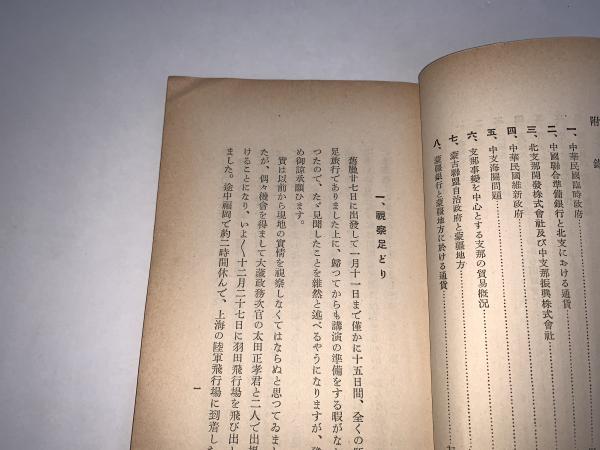 附錄
一、中華民國臨時政府
二、中國聯合準備銀行と北支における通貨
三、北支那開發株式會社及び中支那振興株式會社
四、中華民國維新政府
五、中支海關問題
六、支那事變を中心とする支那の貿易概況
七、蒙古聯盟自治政府と蒙疆地方
八、蒙疆銀行と蒙疆地方に於ける通貨
一、視察足どり
舊臘廿七日に出發して一月十一日まで僅かに十五日間、全くの
足旅行でありました上に、歸つてからも講演の準備をする暇がな
つたので、たゞ見聞したことを雜然と述べるやうになりますが、
め御諒承願ひます。
實は以前から現地の實情を視察しなくてはならぬと思つてゐまし
たが、偶々機會を得まして大藏政務次官の太田正孝君と二人で出
けることになり、いよ〳〵十二月二十七日に羽田飛行場を飛び出し
ました。途中福岡で約二時間休んで、上海の陸軍飛行場に到着した
一